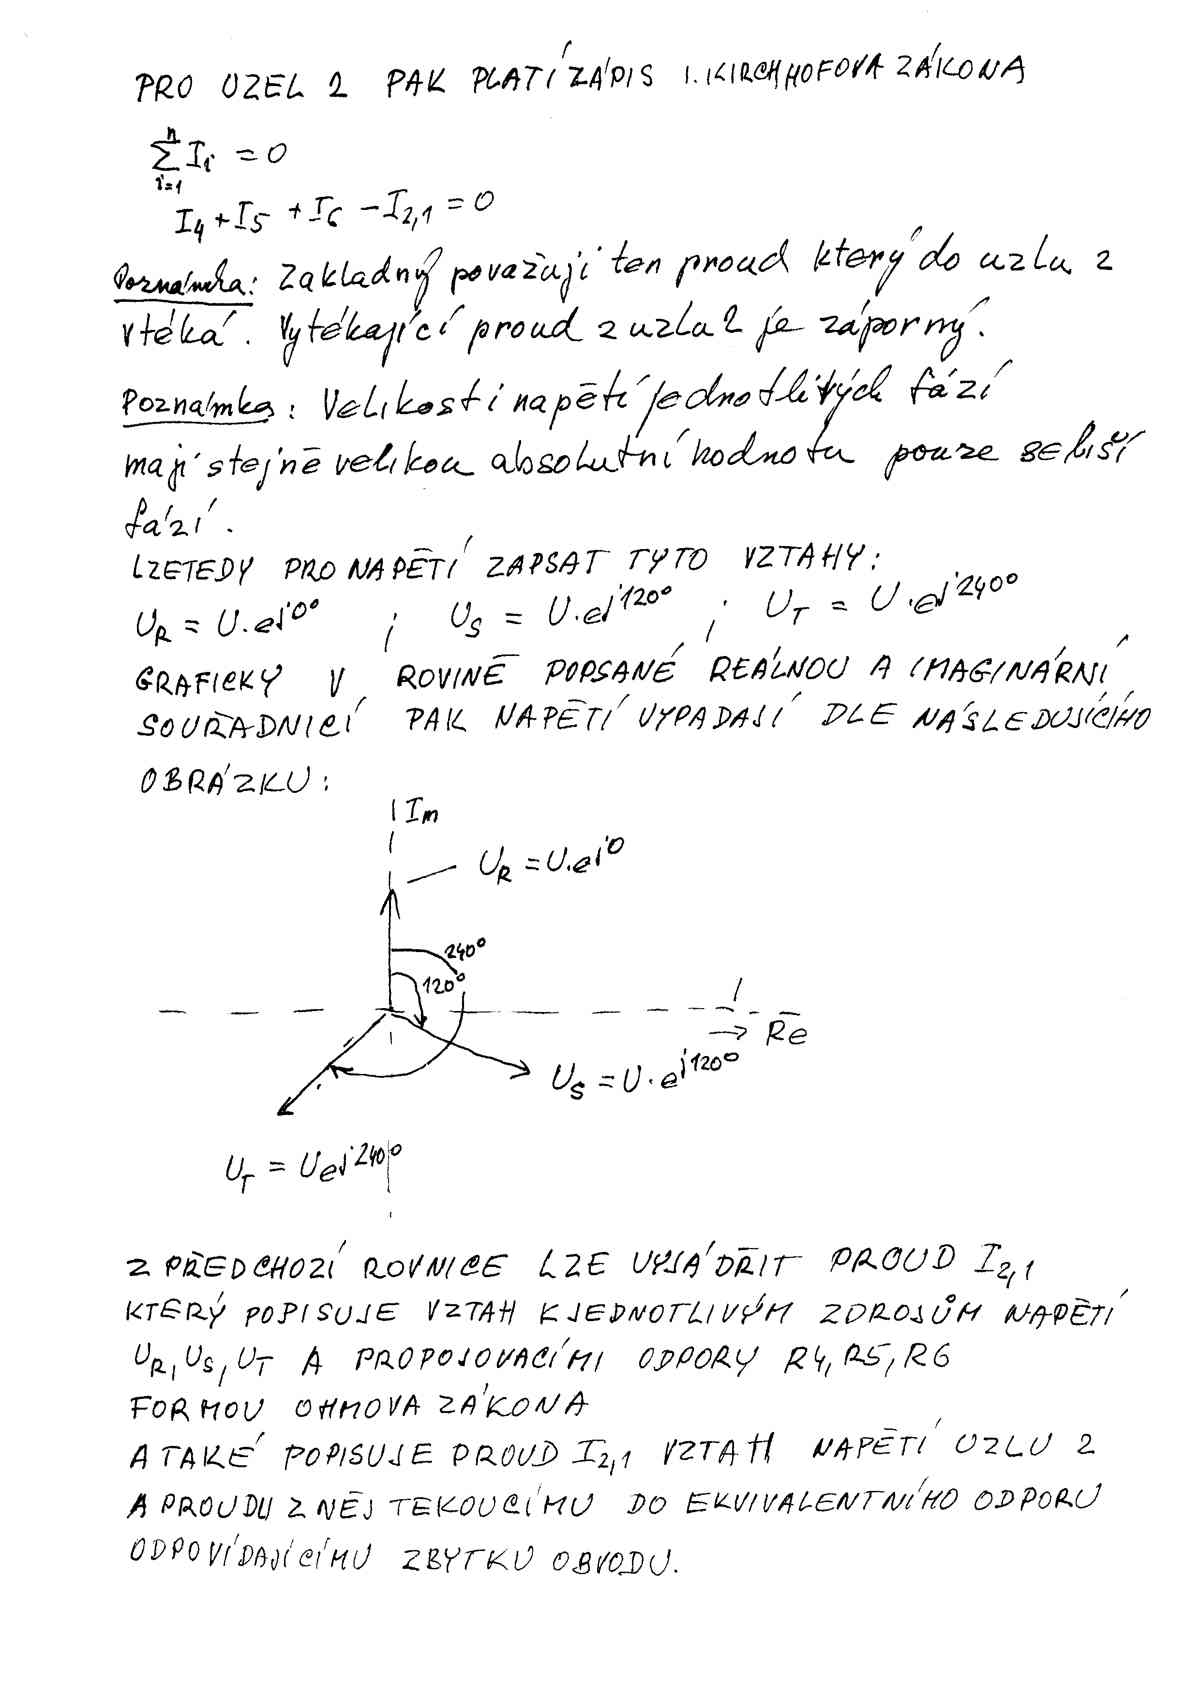 PRO UZEL 2 PAK PLATÍ ZÁPIS 1. KIRCHHOFOVA ZÁKONA
n
∑ Ii = 0
i=1
I4 + I5 + I6 - I2,1 = 0
Poznámka: Zakladný považuji ten proud který do uzlu 2
vtéká. Vytékající proud z uzlu 2 je záporný.
Poznámka: Velikosti napětí jednotlivých fází
mají stejně velikou absolutní hodnotu pouze se liší
fází.
LZE TEDY PRO NAPĚTÍ ZAPSAT TYTO VZTAHY:
UR = U.e^j0° ; US = U.e^j120° ; UT = U.e^j240°
GRAFICKY V ROVINĚ POPSANÉ REÁLNOU A IMAGINÁRNÍ
SOUŘADNICÍ PAK NAPĚTÍ VYPADAJÍ DLE NÁSLEDUJÍCÍHO
OBRÁZKU:
Im
UR = U.e^j0
240°
120°
Re
US = U.e^j120°
UT = Ue^j240°
Z PŘEDCHOZÍ ROVNICE LZE VYJÁDŘIT PROUD I2,1
KTERÝ POPISUJE VZTAH K JEDNOTLIVÝM ZDROJŮM NAPĚTÍ
UR, US, UT A PROPOJOVACÍMI ODPORY R4, R5, R6
FORMOU OHMOVA ZÁKONA
A TAKÉ POPISUJE PROUD I2,1 VZTAH NAPĚTÍ UZLU 2
A PROUDU Z NĚJ TEKOUCÍMU DO EKVIVALENTNÍHO ODPORU
ODPOVÍDAJÍCÍMU ZBYTKU OBVODU.